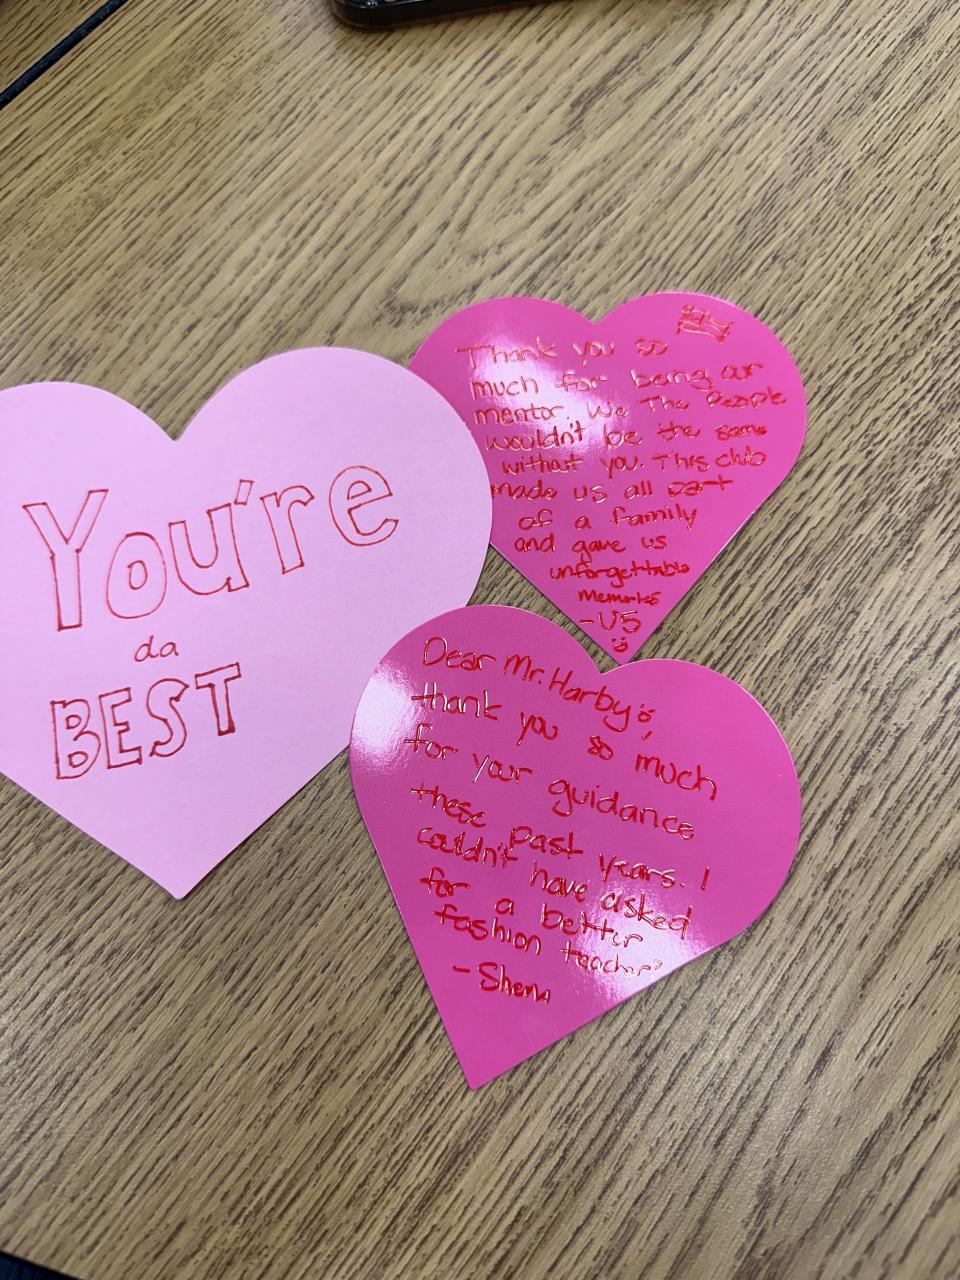 You're
da
BEST
Thank you so
much for being our
mentor. We The People
wouldn't be the same
without you. This club
made us all part
of a family
and gave us
unforgettable
Memories
- U5
Dear Mr. Harby,
thank you so much
for your guidance
these past years. I
couldn't have asked
for a better
fashion teacher
- Shena